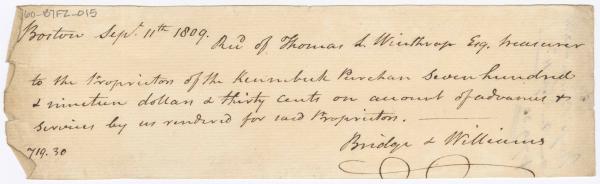 760-B7F2-015
Boston Sepr. 11th 1809. Recd. of Thomas L. Winthrop Esq. Treasurer
to the Proprietors of the Kennebeck Purchase Seven hundred
& nineteen dollars & thirty cents on account of advances &
Services by us rendered for said Proprietors.
Bridge & Williams
719.30